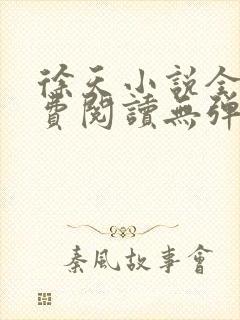 徐天小説全
費閱讀無彈
秦風故事會